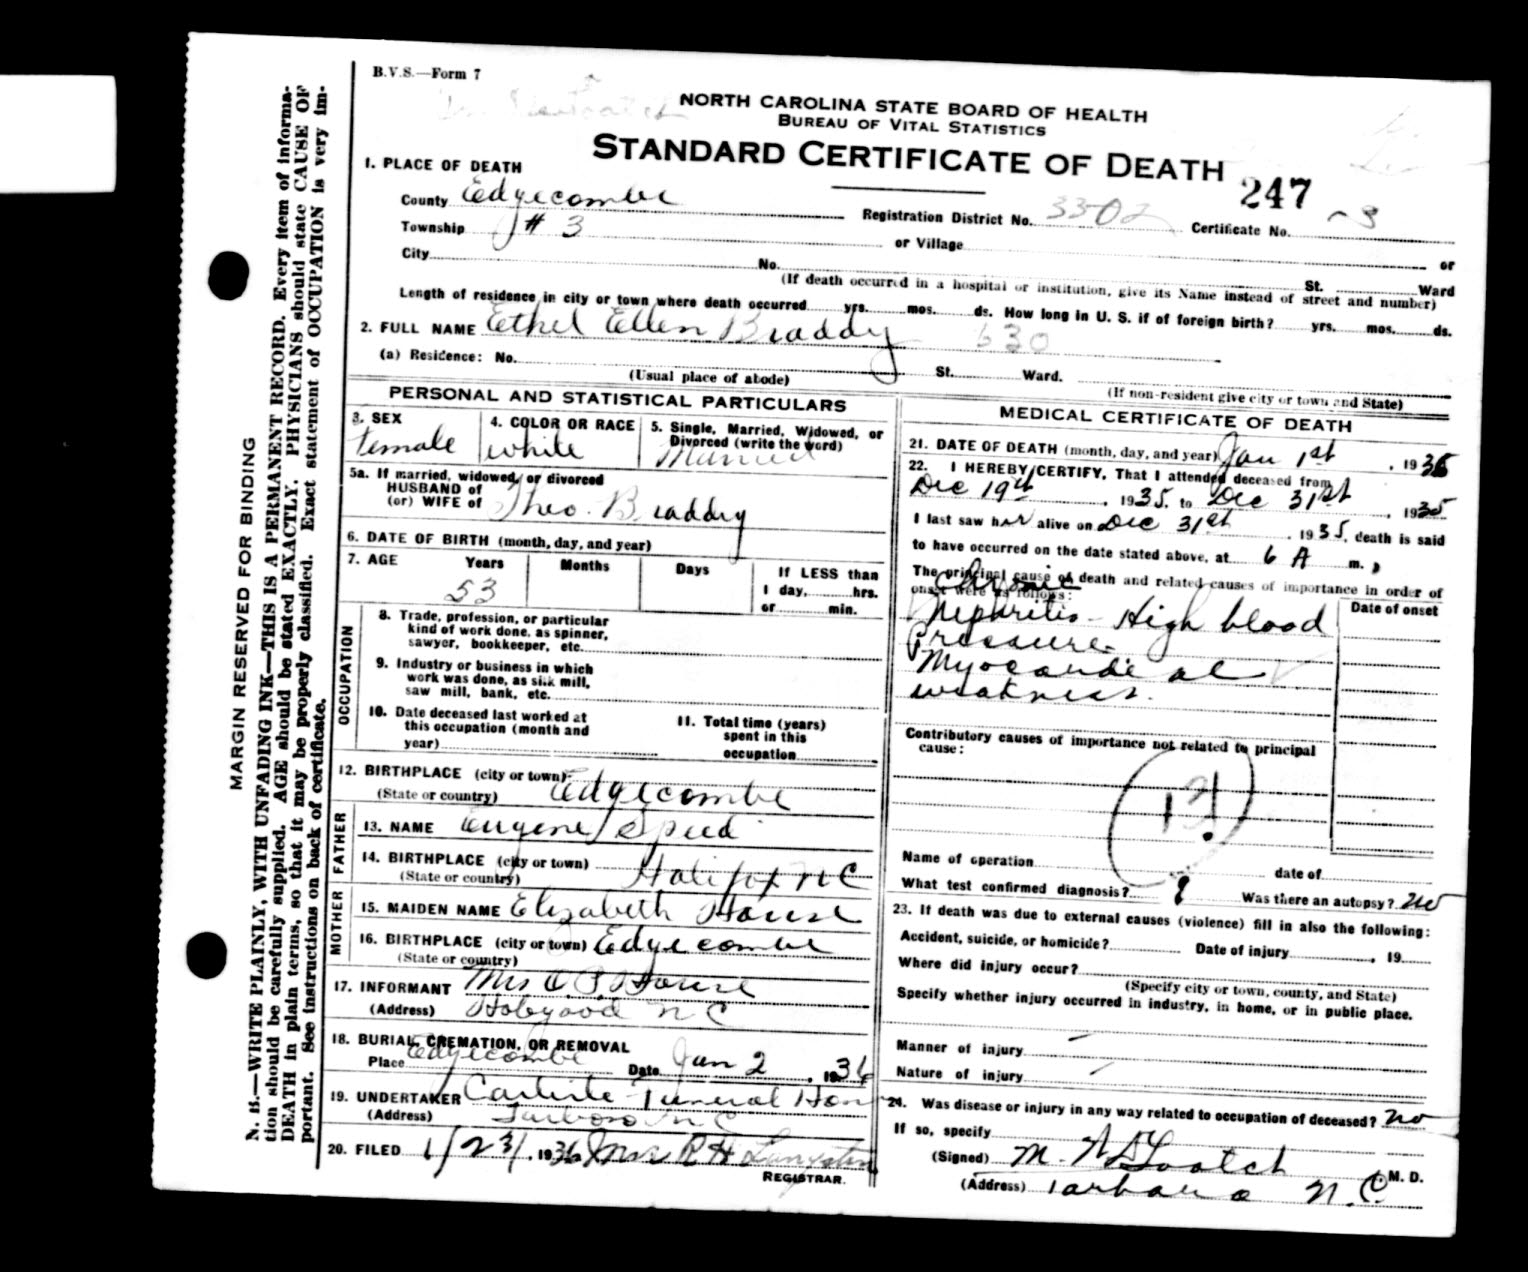 B.V.S.—Form 7
NORTH CAROLINA STATE BOARD OF HEALTH
BUREAU OF VITAL STATISTICS
STANDARD CERTIFICATE OF DEATH
247
1. PLACE OF DEATH
County Edgecombe Registration District No. 33-02 Certificate No. 3
Township # 3 or Village or
City No. St. Ward
(If death occurred in a hospital or institution, give its Name instead of street and number)
Length of residence in city or town where death occurred yrs. mos. ds. How long in U. S. if of foreign birth? yrs. mos. ds.
2. FULL NAME Ethel Ellen Braddy 630
(a) Residence: No. St. Ward.
(Usual place of abode) (If non-resident give city or town and State)
PERSONAL AND STATISTICAL PARTICULARS
3. SEX female
4. COLOR OR RACE white
5. Single, Married, Widowed, or
Divorced (write the word)
Married
5a. If married, widowed, or divorced
HUSBAND of
(or) WIFE of Theo. Braddy
6. DATE OF BIRTH (month, day, and year)
7. AGE Years Months Days If LESS than
53 1 day, hrs.
or min.
OCCUPATION
8. Trade, profession, or particular
kind of work done, as spinner,
sawyer, bookkeeper, etc.
9. Industry or business in which
work was done, as silk mill,
saw mill, bank, etc.
10. Date deceased last worked at
this occupation (month and
year)
11. Total time (years)
spent in this
occupation
12. BIRTHPLACE (city or town)
(State or country) Edgecombe
FATHER
13. NAME Eugene Speed
14. BIRTHPLACE (city or town)
(State or country) Halifax N C
MOTHER
15. MAIDEN NAME Elizabeth House
16. BIRTHPLACE (city or town) Edgecombe
(State or country)
17. INFORMANT Mrs O P House
(Address) Hobgood N C
18. BURIAL, CREMATION, OR REMOVAL
Place Edgecombe Date Jan 2, 1936
19. UNDERTAKER Carlisle Funeral Home
(Address) Tarboro N C
20. FILED 1/23/, 1936 Mrs R H
REGISTRAR.
MEDICAL CERTIFICATE OF DEATH
21. DATE OF DEATH (month, day, and year) Jan 1st, 1936
22. I HEREBY CERTIFY, That I attended deceased from
Dec 19th, 1935, to Dec 31st, 1935
I last saw her alive on Dec 31st, 1935, death is said
to have occurred on the date stated above, at 6 A m.
The principal cause of death and related causes of importance in order of
onset were as follows:
Date of onset
Chronic
Nephritis - High blood
pressure.
Myocardial
weakness.
Contributory causes of importance not related to principal
cause:
Name of operation date of
What test confirmed diagnosis? Was there an autopsy? no
23. If death was due to external causes (violence) fill in also the following:
Accident, suicide, or homicide? Date of injury , 19
Where did injury occur?
(Specify city or town, county, and State)
Specify whether injury occurred in industry, in home, or in public place.
Manner of injury
Nature of injury
24. Was disease or injury in any way related to occupation of deceased? no
If so, specify
(Signed) M. M. D.
(Address) Tarboro N. C.
MARGIN RESERVED FOR BINDING
N. B.—WRITE PLAINLY, WITH UNFADING INK—THIS IS A PERMANENT RECORD. Every item of informa-
tion should be carefully supplied. AGE should be stated EXACTLY. PHYSICIANS should state CAUSE OF
DEATH in plain terms, so that it may be properly classified. Exact statement of OCCUPATION is very im-
portant. See instructions on back of certificate.